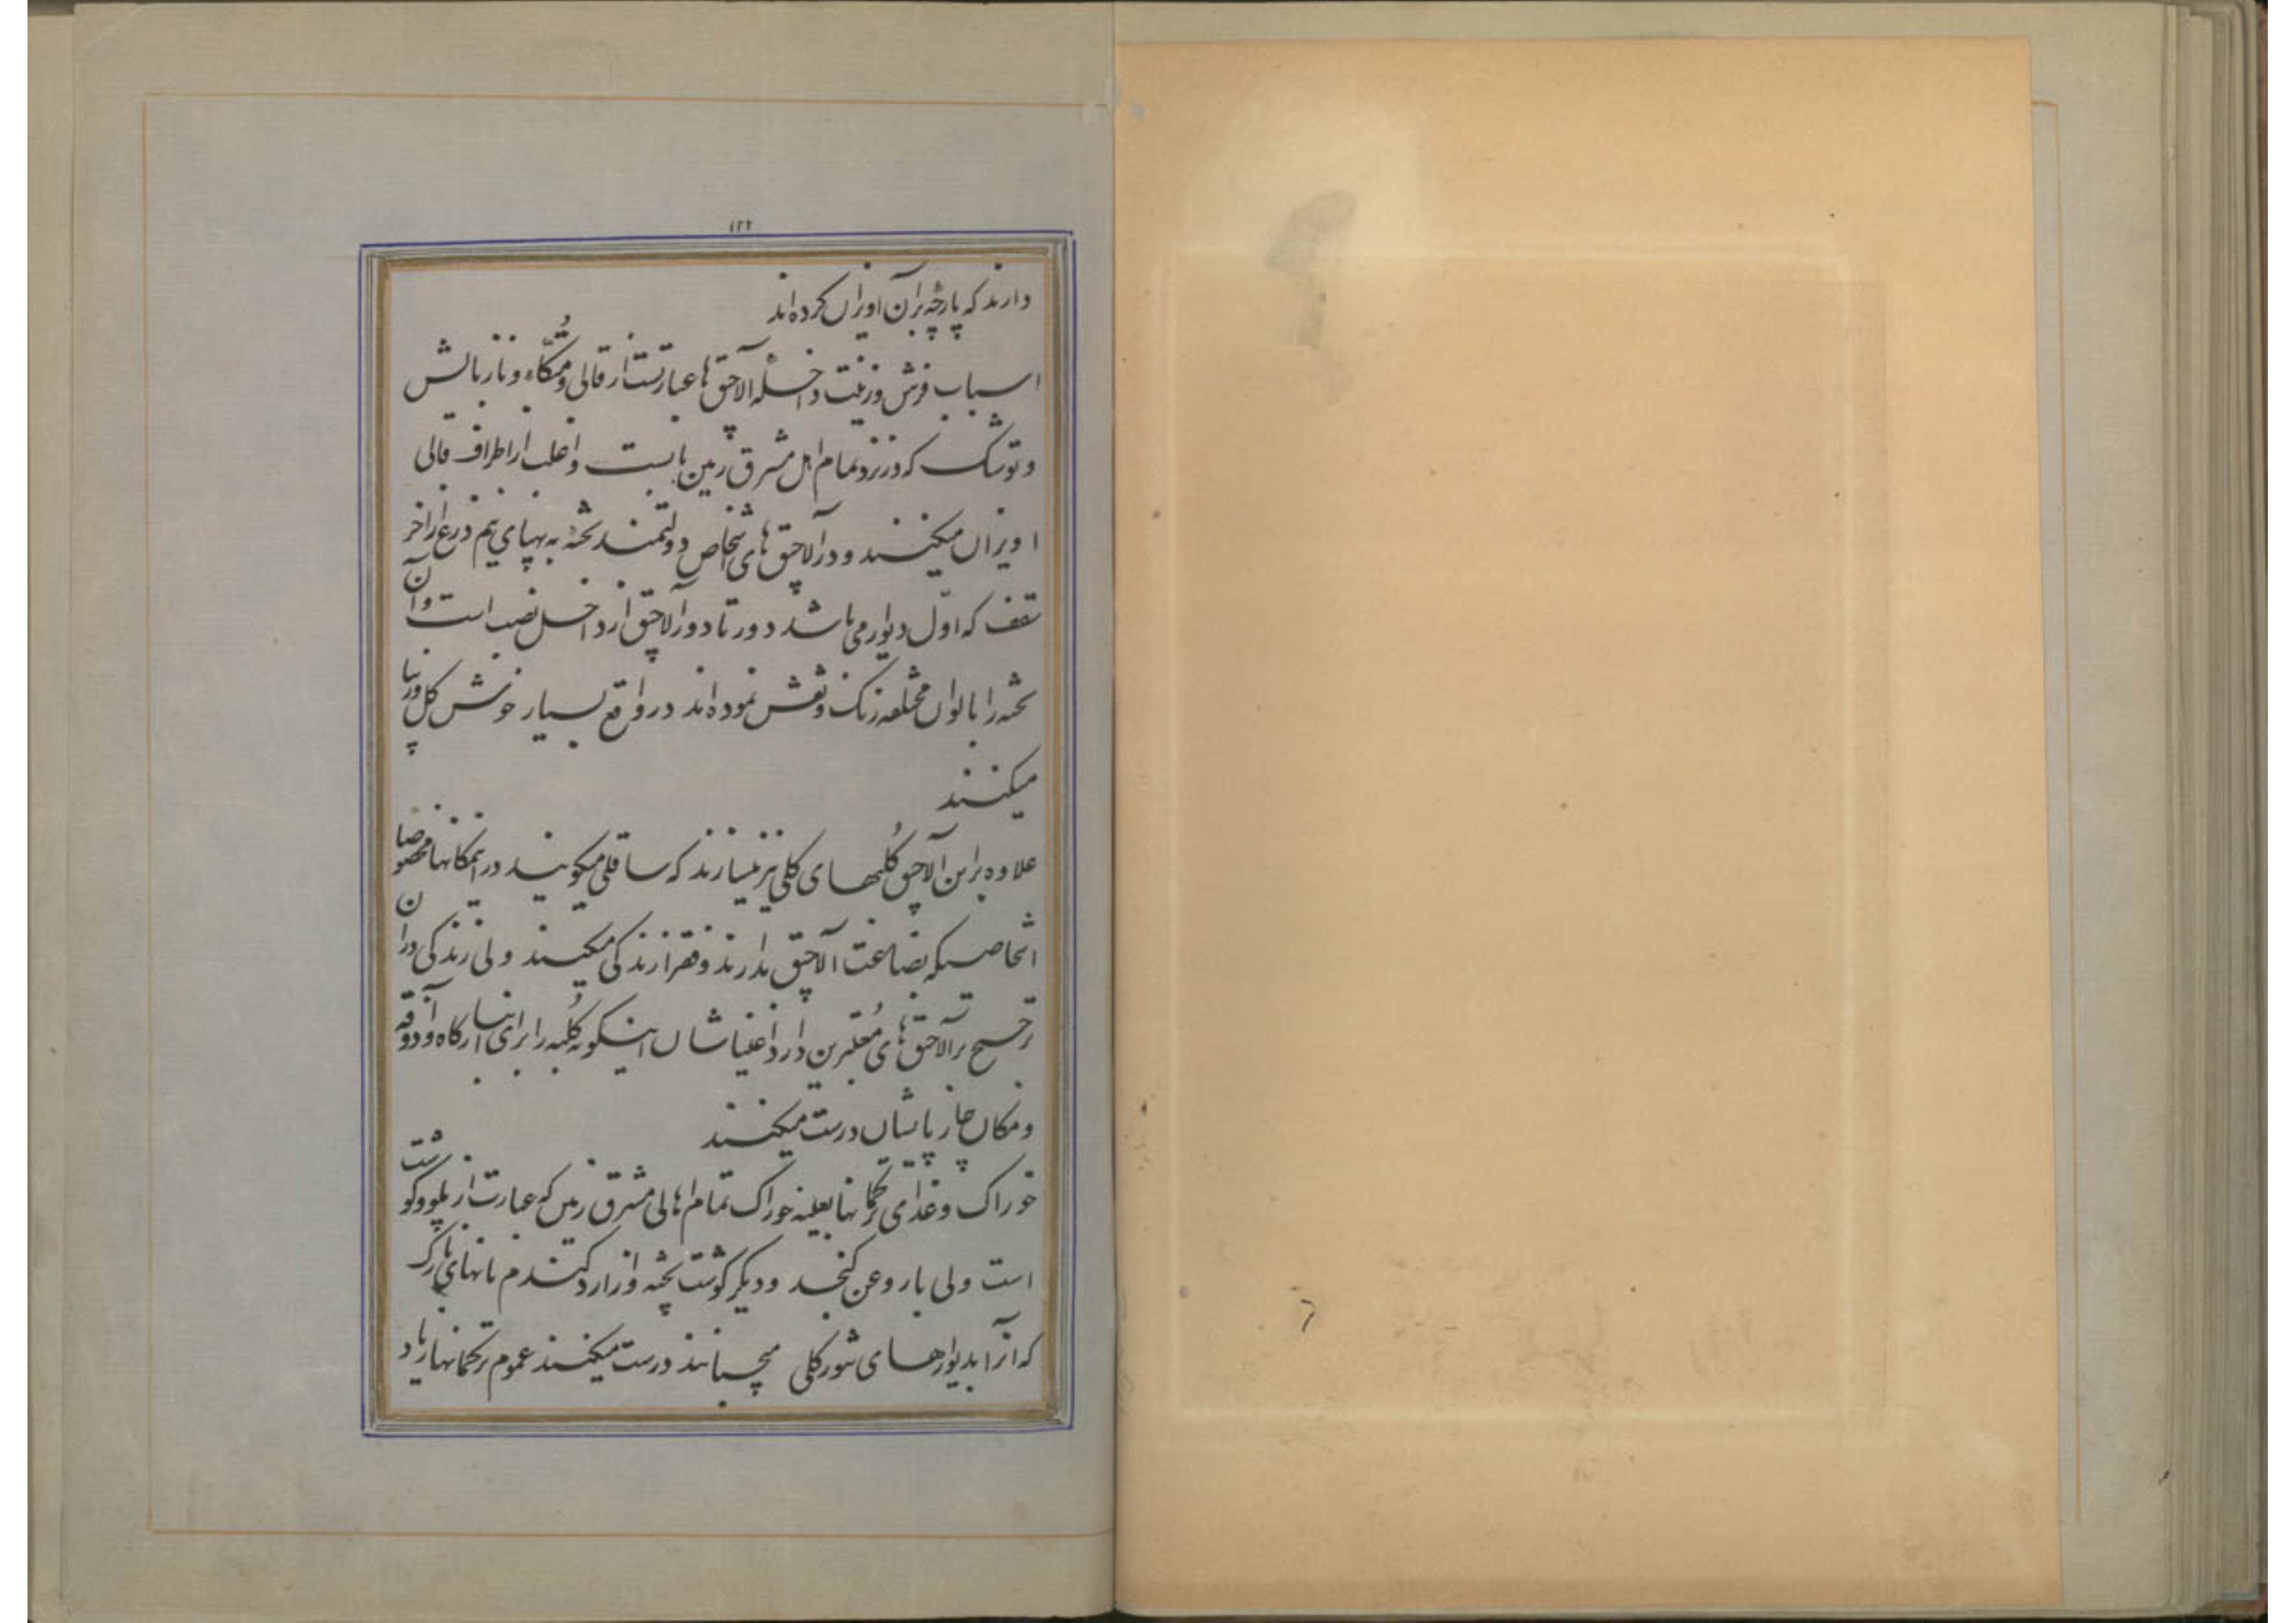 ۱۲۲
دارند که پارچه بر آن اویزان کرده‌اند
اسباب فرش و زینت داخله آلاچق ها عبارتست از قالی و مُتّکاء و نازبالش
و توشک که در نزد تمام اهل مشرق زمین باب است و اغلب از اطراف قالی
اویزان میکنند و در آلاچق های اشخاص دولتمند تخته به پهنای نیم ذرع از آخر
سقف که اوّل دیوار می باشد دور تا دور آلاچق از داخل نصب است و آن
تخته را بالوان مختلفه رنگ و نقش نموده‌اند در واقع بسیار خوش گل و زیبا
میکنند
علاوه بر این آلاچق کُلبهای گلی نیز میسازند که ساقلی میگویند در اینمکانها مخصوصا
اشخاصیکه بضاعت آلاچق ندارند و فقرا زندگی میکنند ولی زندگی در آن
ترجیح بر آلاچق های مُعتبرین دارد اغنیاشان اینگونه کُلبه را برای انبار کاه و آذوقه
و مکان چارپایشان درست میکنند
خوراک و غذای ترکمانها بعینه خوراک تمام اهالی مشرق زمین که عبارت از پلو و گوشت
است ولی با روغن کنجد و دیگر گوشت پخته و از ارد گندم نانهای نازک
که انرا بدیوارهای تنور گلی میچسبانند درست میکنند عموم ترکمانها زیاد